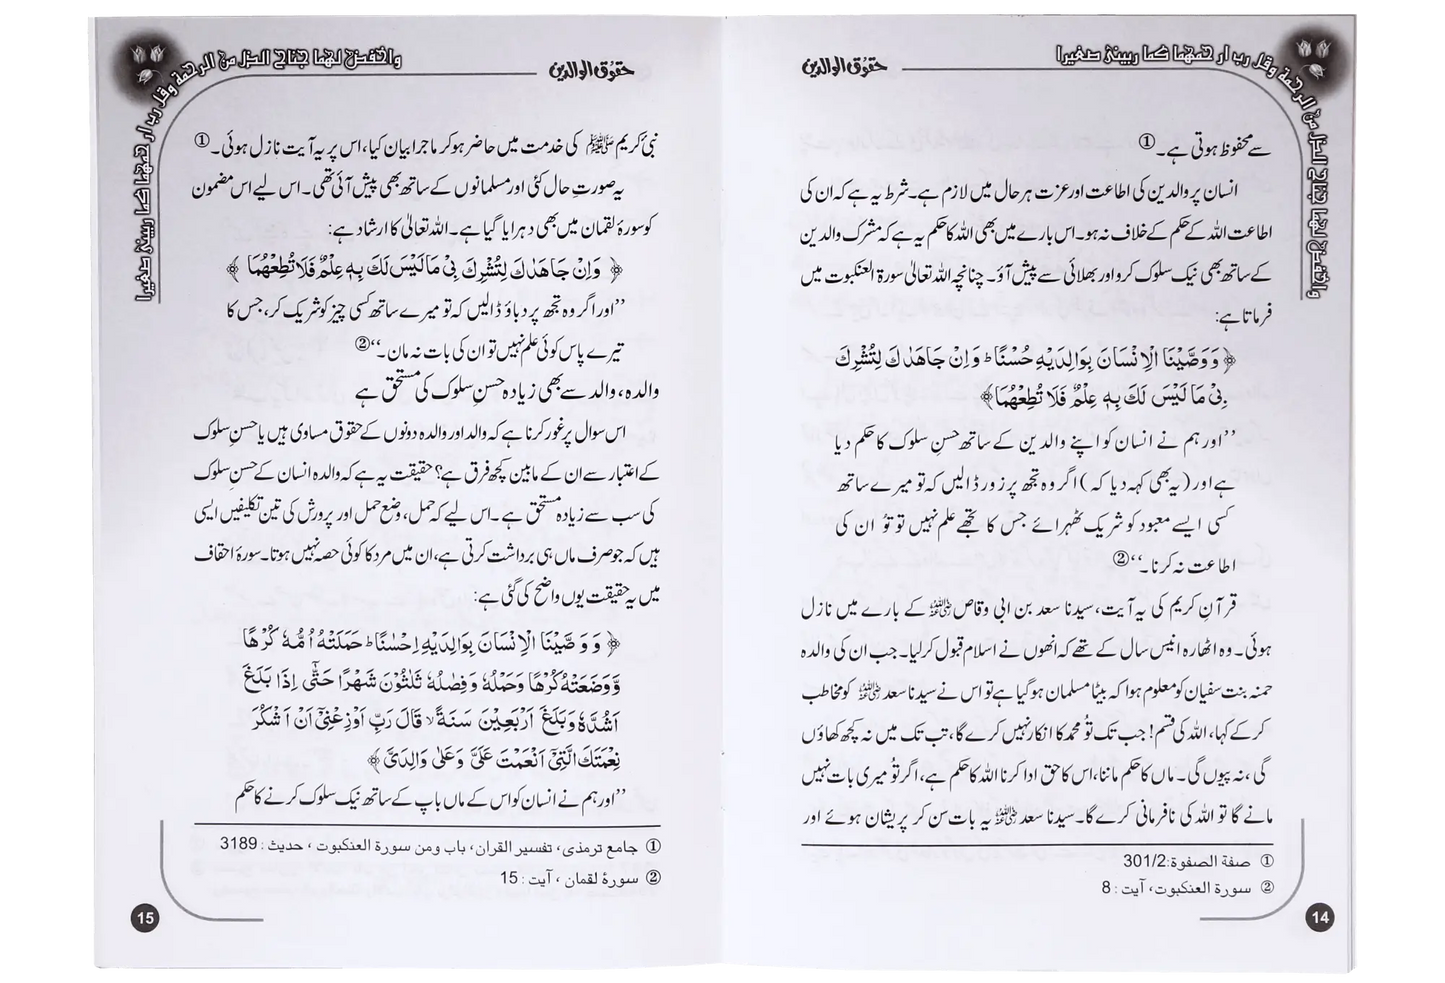 حقوق الوالدین
واخفض لهما جناح الذل من الرحمة وقل رب ارحمهما كما ربيني صغيرا
سے محفوظ ہوتی ہے۔①
انسان پر والدین کی اطاعت اور عزت ہر حال میں لازم ہے۔ شرط یہ ہے کہ ان کی
اطاعت اللہ کے حکم کے خلاف نہ ہو۔ اس بارے میں بھی اللہ کا حکم یہ ہے کہ مشرک والدین
کے ساتھ بھی نیک سلوک کرو اور بھلائی سے پیش آؤ۔ چنانچہ اللہ تعالیٰ سورۃ العنکبوت میں
فرماتا ہے:
﴿ وَوَصَّيْنَا الْاِنْسَانَ بِوَالِدَيْهِ حُسْنًا ؕ وَ اِنْ جَاهَدٰكَ لِتُشْرِكَ
بِیْ مَا لَيْسَ لَكَ بِهٖ عِلْمٌ فَلَا تُطِعْهُمَا ﴾
’’اور ہم نے انسان کو اپنے والدین کے ساتھ حسنِ سلوک کا حکم دیا
ہے اور (یہ بھی کہہ دیا کہ) اگر وہ تجھ پر زور ڈالیں کہ تو میرے ساتھ
کسی ایسے معبود کو شریک ٹھہرائے جس کا تجھے علم نہیں تو تُو ان کی
اطاعت نہ کرنا۔‘‘②
قرآنِ کریم کی یہ آیت، سیدنا سعد بن ابی وقاص رضی اللہ عنہ کے بارے میں نازل
ہوئی۔ وہ اٹھارہ انیس سال کے تھے کہ انھوں نے اسلام قبول کر لیا۔ جب ان کی والدہ
حمنہ بنت سفیان کو معلوم ہوا کہ بیٹا مسلمان ہو گیا ہے تو اس نے سیدنا سعد رضی اللہ عنہ کو مخاطب
کر کے کہا، اللہ کی قسم! جب تک تُو محمد کا انکار نہیں کرے گا، تب تک میں نہ کچھ کھاؤں
گی، نہ پیوں گی۔ ماں کا حکم ماننا، اس کا حق ادا کرنا اللہ کا حکم ہے، اگر تُو میری بات نہیں
مانے گا تو اللہ کی نافرمانی کرے گا۔ سیدنا سعد رضی اللہ عنہ یہ بات سن کر پریشان ہوئے اور
① صفة الصفوة: 301/2
② سورة العنكبوت، آیت: 8
14
حقوق الوالدین
واخفض لهما جناح الذل من الرحمة وقل رب ارحمهما كما ربيني صغيرا
نبیٔ کریم ﷺ کی خدمت میں حاضر ہو کر ماجرا بیان کیا، اس پر یہ آیت نازل ہوئی۔①
یہ صورتِ حال کئی اور مسلمانوں کے ساتھ بھی پیش آئی تھی۔ اس لیے اس مضمون
کو سورۂ لقمان میں بھی دہرایا گیا ہے۔ اللہ تعالیٰ کا ارشاد ہے:
﴿ وَاِنْ جَاهَدٰكَ لِتُشْرِكَ بِیْ مَا لَيْسَ لَكَ بِهٖ عِلْمٌ فَلَا تُطِعْهُمَا ﴾
’’اور اگر وہ تجھ پر دباؤ ڈالیں کہ تو میرے ساتھ کسی چیز کو شریک کر، جس کا
تیرے پاس کوئی علم نہیں تو ان کی بات نہ مان۔‘‘②
والدہ، والد سے بھی زیادہ حسنِ سلوک کی مستحق ہے
اس سوال پر غور کرنا ہے کہ والد اور والدہ دونوں کے حقوق مساوی ہیں یا حسنِ سلوک
کے اعتبار سے ان کے مابین کچھ فرق ہے؟ حقیقت یہ ہے کہ والدہ انسان کے حسنِ سلوک
کی سب سے زیادہ مستحق ہے۔ اس لیے کہ حمل، وضعِ حمل اور پرورش کی تین تکلیفیں ایسی
ہیں کہ جو صرف ماں ہی برداشت کرتی ہے، ان میں مرد کا کوئی حصہ نہیں ہوتا۔ سورۂ احقاف
میں یہ حقیقت یوں واضح کی گئی ہے:
﴿ وَ وَصَّيْنَا الْاِنْسَانَ بِوَالِدَيْهِ اِحْسٰنًا ؕ حَمَلَتْهُ اُمُّهٗ كُرْهًا
وَّوَضَعَتْهُ كُرْهًا وَحَمْلُهٗ وَفِصٰلُهٗ ثَلٰثُوْنَ شَهْرًا حَتّٰۤى اِذَا بَلَغَ
اَشُدَّهٗ وَبَلَغَ اَرْبَعِيْنَ سَنَةً ۙ قَالَ رَبِّ اَوْزِعْنِیْۤ اَنْ اَشْكُرَ
نِعْمَتَكَ الَّتِیْۤ اَنْعَمْتَ عَلَیَّ وَعَلٰى وَالِدَیَّ ﴾
’’اور ہم نے انسان کو اس کے ماں باپ کے ساتھ نیک سلوک کرنے کا حکم
① جامع ترمذی، تفسیر القرآن، باب ومن سورة العنكبوت، حدیث: 3189
② سورۂ لقمان، آیت: 15
15